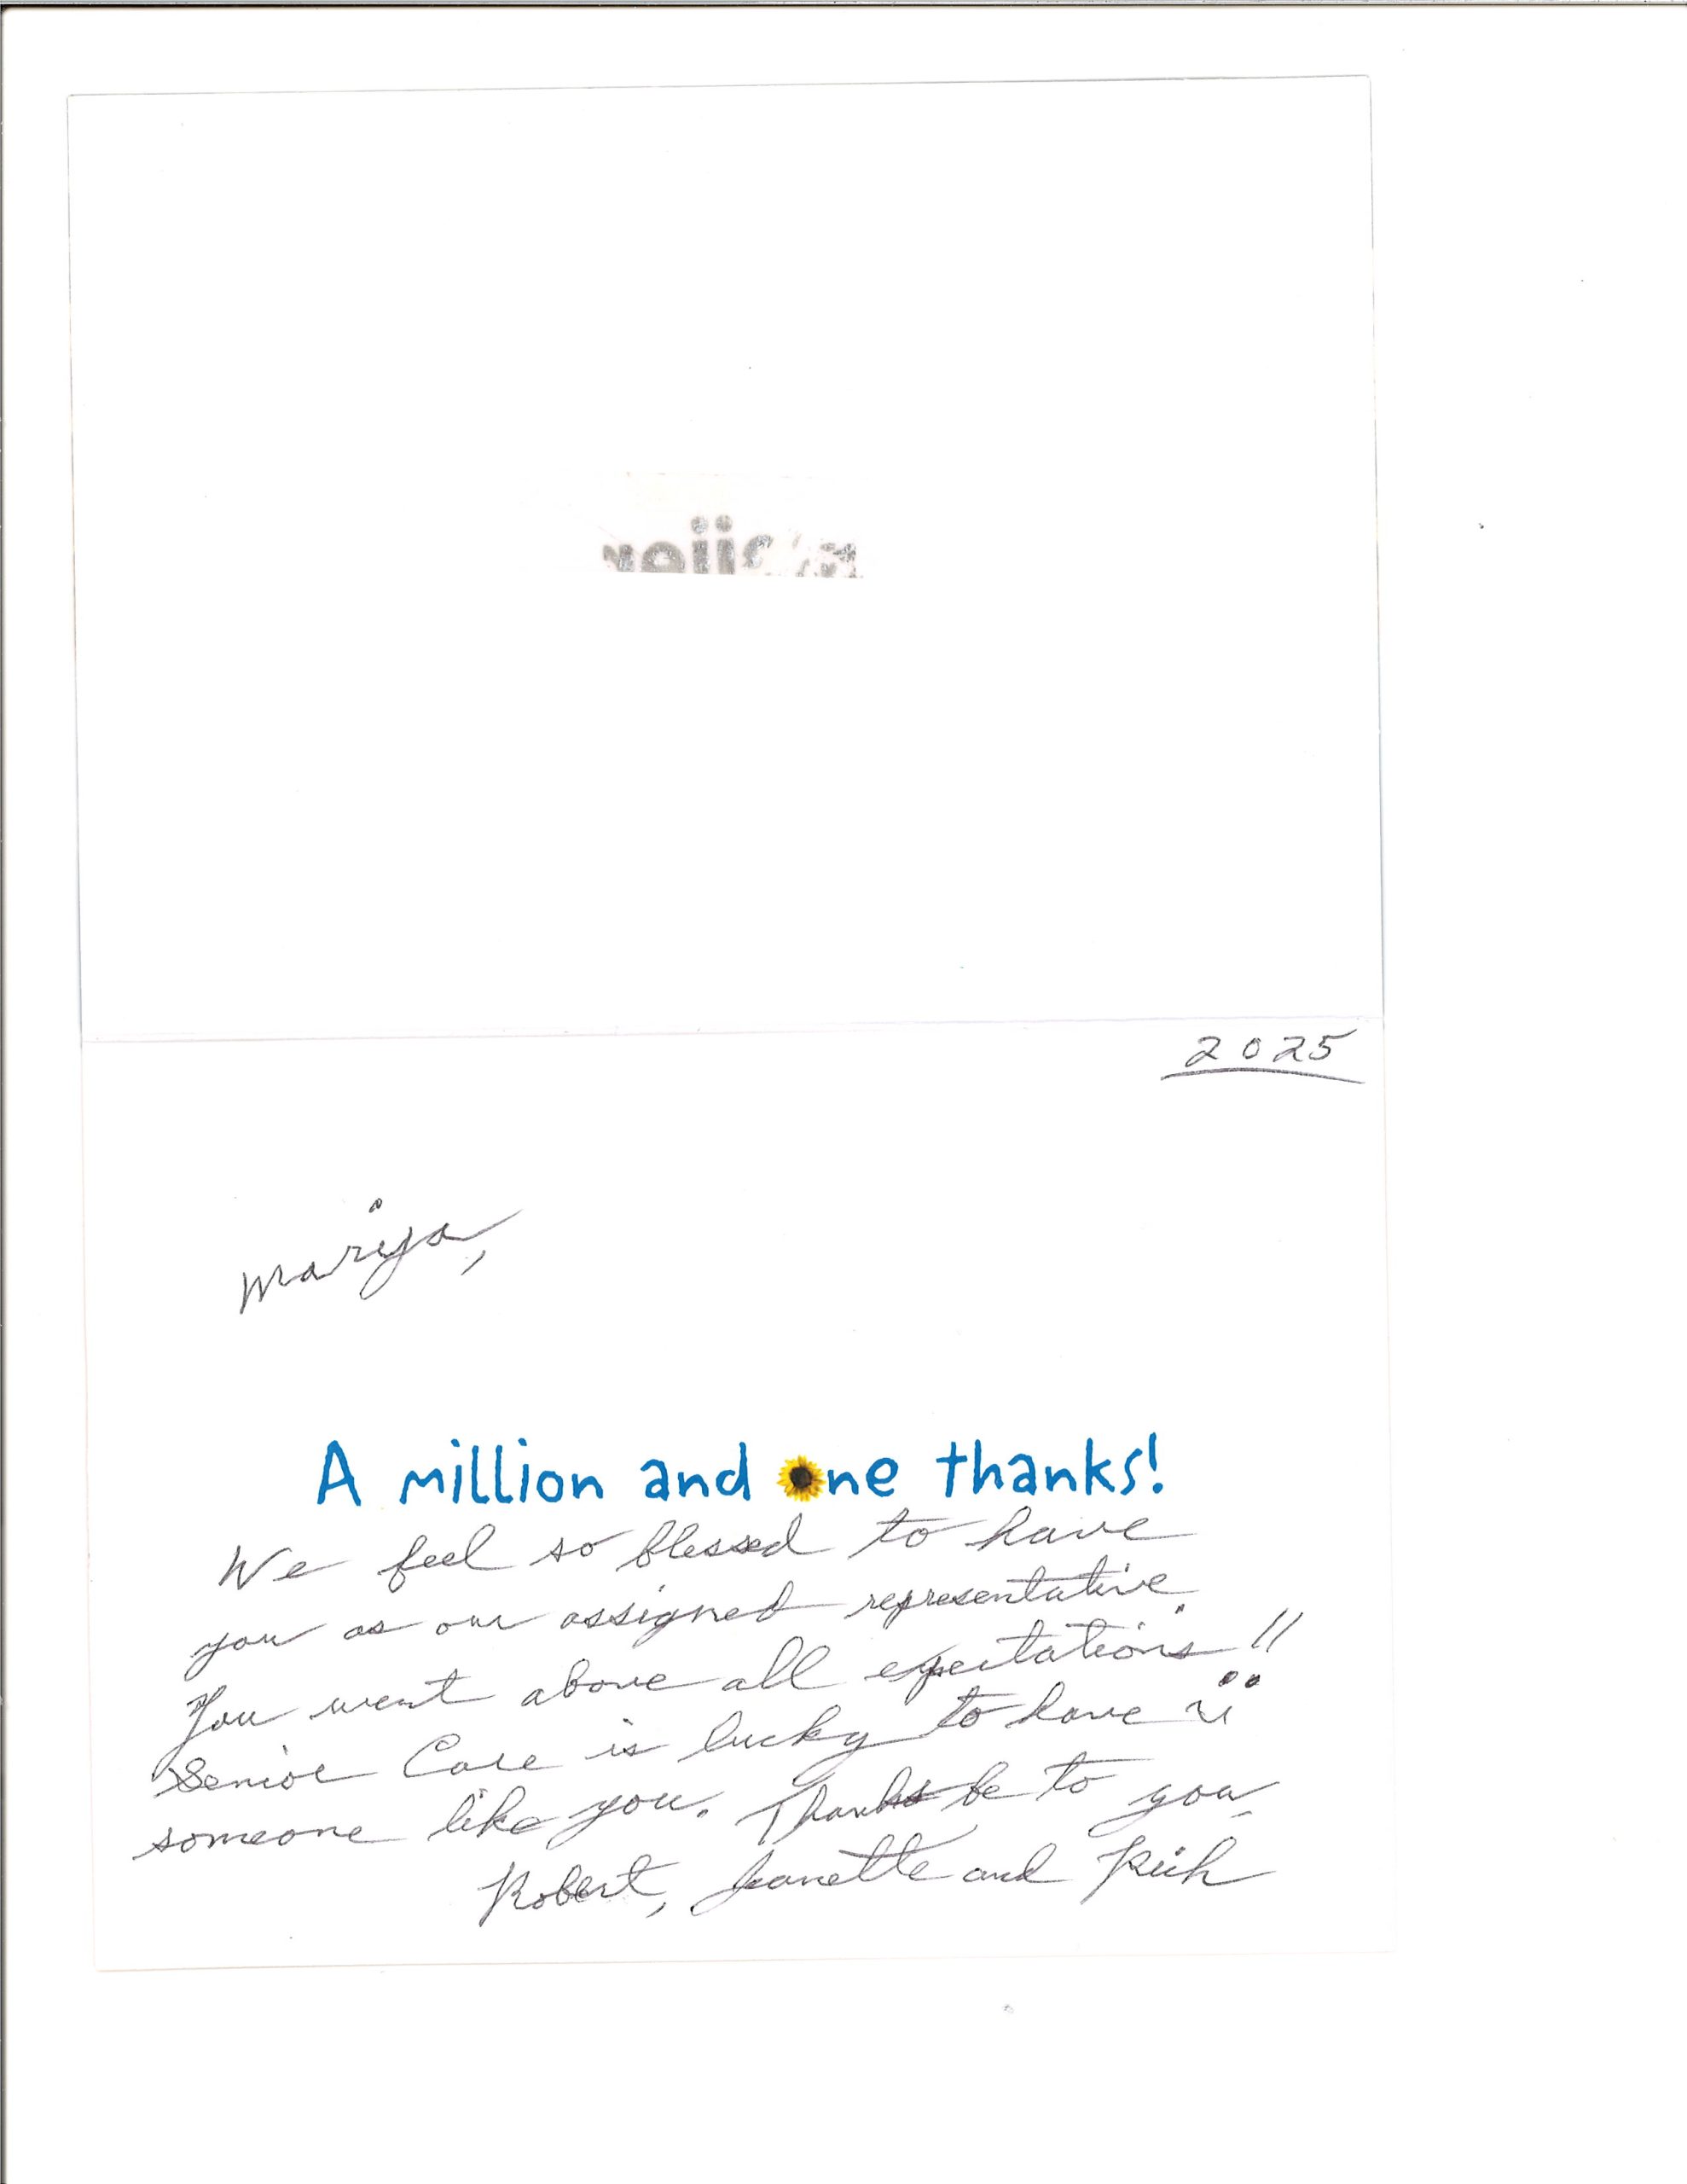 2025
Mariya,
A million and one thanks!
We feel so blessed to have
you as our assigned representative.
You went above all expectations!!
Senior Care is lucky to have
someone like you. Thanks be to you
Robert, Jeanette and Rich